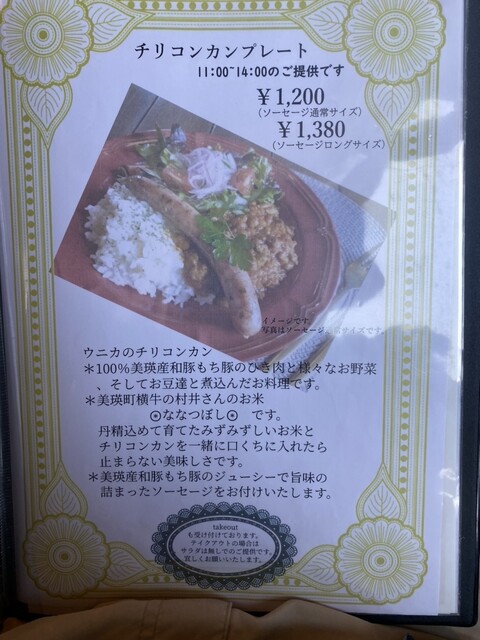 チリコンカンプレート
11:00~14:00のご提供です
￥1,200
（ソーセージ通常サイズ）
￥1,380
（ソーセージロングサイズ）
イメージです。
写真はソーセージ サイズです。
ウニカのチリコンカン
＊100%美瑛産和豚もち豚のひき肉と様々なお野菜
、そしてお豆達と煮込んだお料理です。
＊美瑛町横牛の村井さんのお米
◎ななつぼし◎ です。
丹精込めて育てたみずみずしいお米と
チリコンカンを一緒に口くちに入れたら
止まらない美味しさです。
＊美瑛産和豚もち豚のジューシーで旨味の
詰まったソーセージをお付けいたします。
takeout
も受け付けております。
テイクアウトの場合は
サラダは無しでのご提供です。
宜しくお願いいたします。